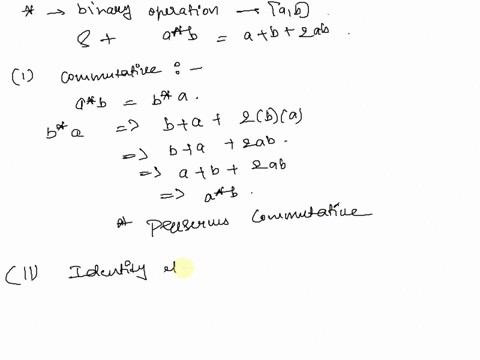 * → binary operation → [a,b]
S t a*b = a+b+2ab.
(i) Commutative :-
a*b = b*a.
b*a => b+a + 2(b)(a)
=> b+a +2ab.
=> a+b + 2ab
=> a*b.
* Preserves Commutative
(ii) Identity el